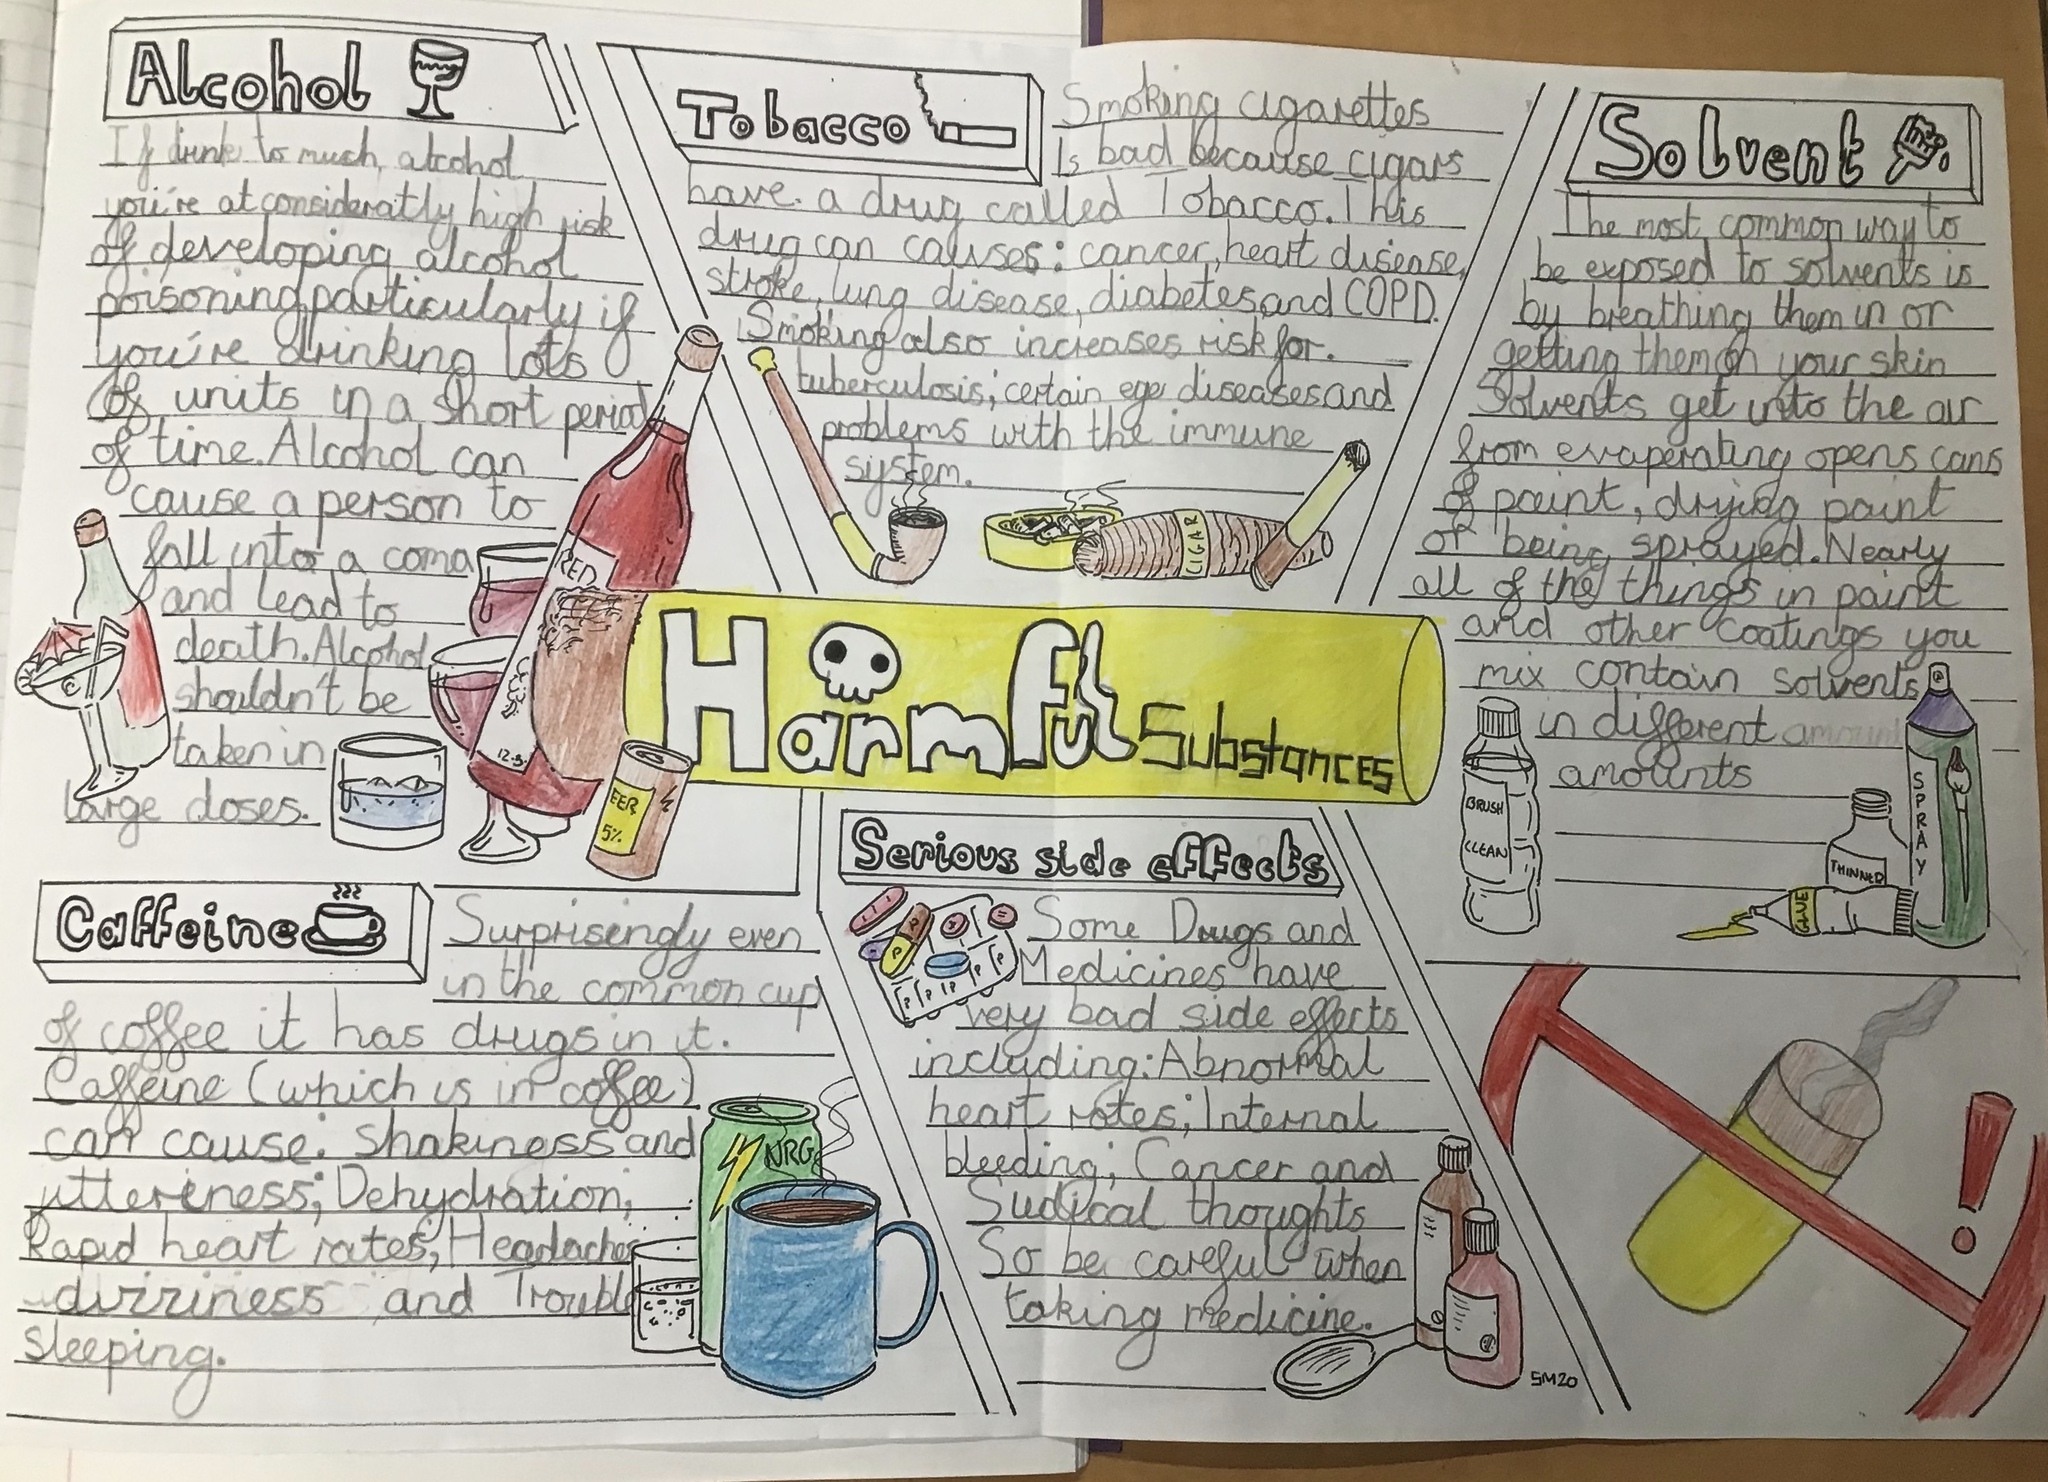 Alcohol
If drink to much alcohol
you're at consideratly high risk
of developing alcohol
poisoning particularly if
you're drinking lots
of units in a short period
of time. Alcohol can
cause a person to
fall into a coma
and lead to
death. Alcohol
shouldn't be
taken in
large doses.
RED
12.5%
EER
5%
Tobacco
Smoking cigarettes
Is bad because cigars
have. a drug called Tobacco. This
drug can causes: cancer, heart disease,
stroke, lung disease, diabetes, and COPD.
Smoking also increases risk for.
tuberculosis; certain eye diseases and
problems with the immune
system.
CIGAR
Solvent
The most common way to
be exposed to solvents is
by breathing them in or
getting them on your skin
Solvents get into the air
from evaperating opens cans
of paint, drying paint
or being sprayed. Nearly
all of the things in paint
and other coatings you
mix contain solvents
in different
amounts
BRUSH
CLEAN
THINNER
GLUE
SPRAY
Harmful Substances
Caffeine
Surprisingly even
in the common cup
of coffee it has drugs in it.
Caffeine (which is in coffee)
can cause: shakiness and
jittereness; Dehydration;
Rapid heart rates; Headaches
dizziness and Trouble
sleeping.
NRG
Serious side effects
Some Drugs and
Medicines have
very bad side effects
including: Abnormal
heart rates; Internal
bleeding; Cancer and
thoughts
So be careful when
taking medicine.
P
P
P P P P P P
SM20
!